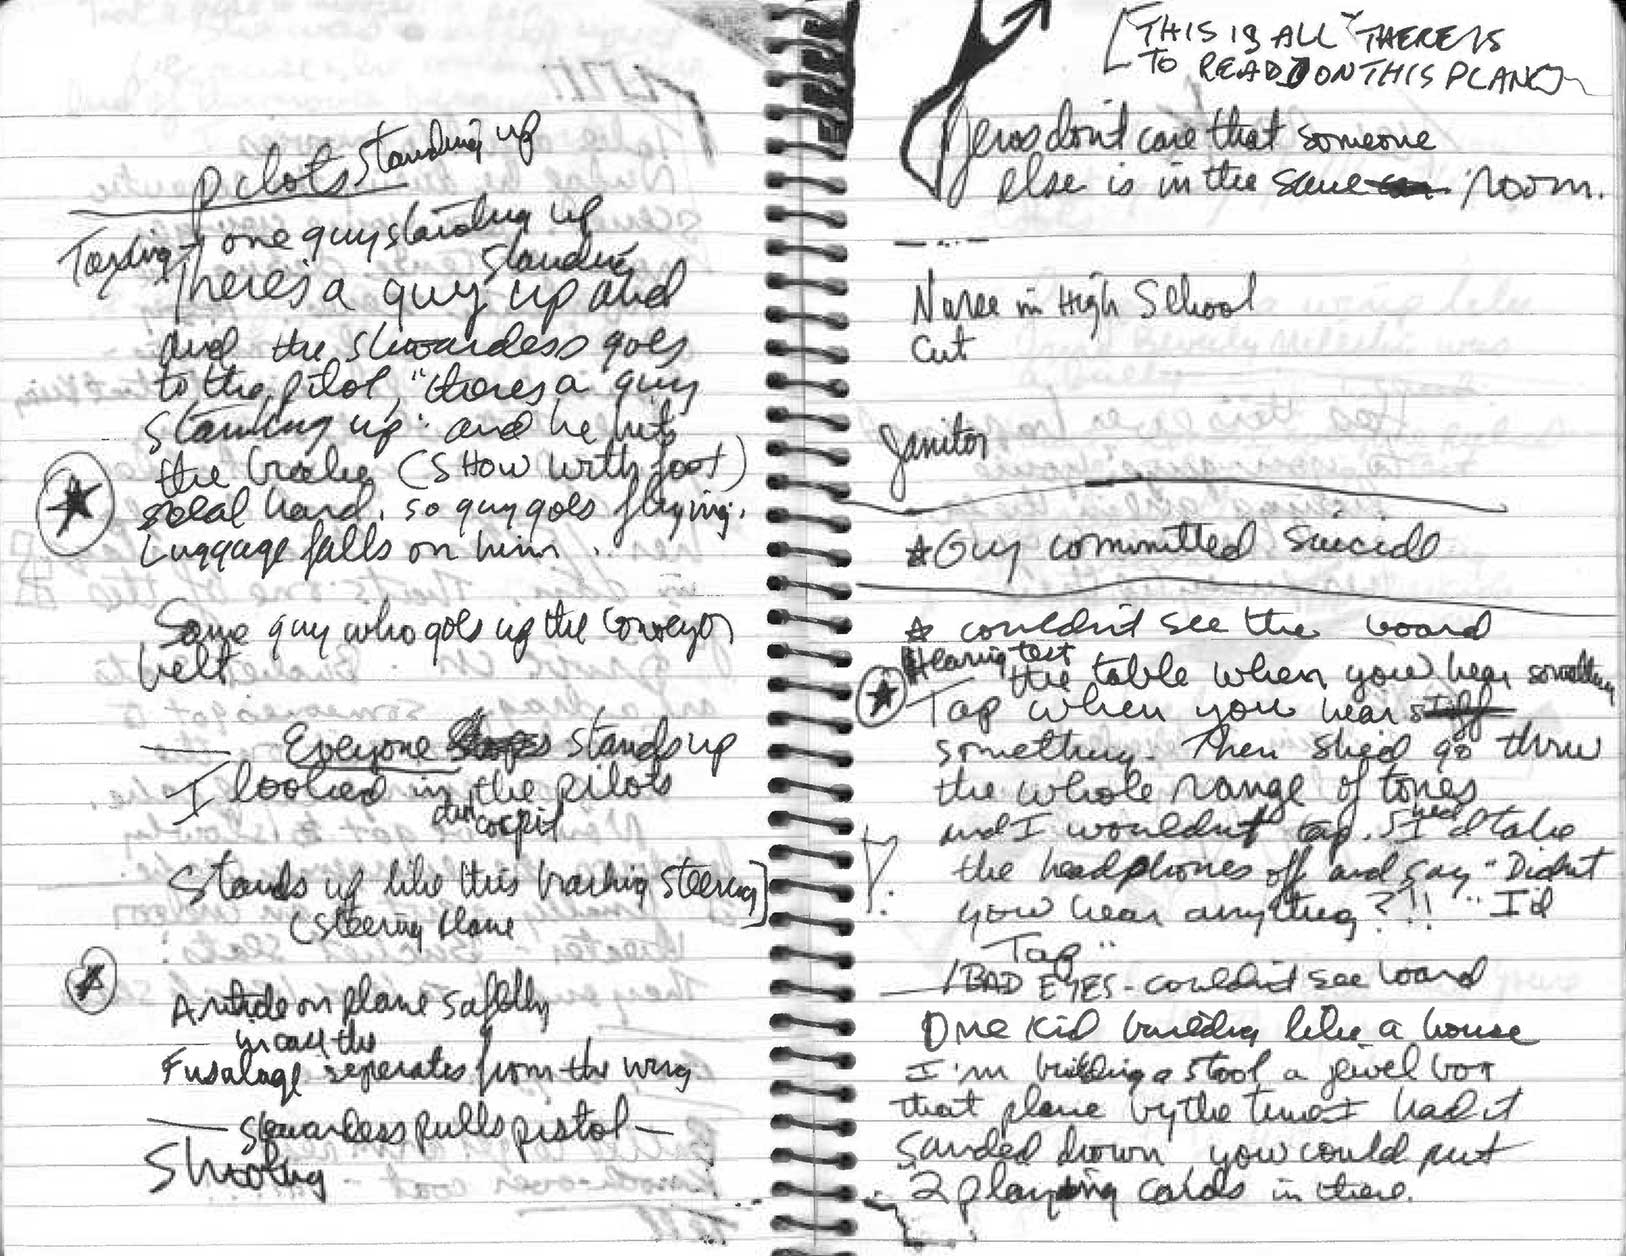 pilots standing up
Taxiing → one guy standing up
There's a guy standing up and
and the stuardess goes
to the pilot, "theres a guy
standing up." and he hits
the brake (SHOW with foot)
real hard. so guy goes flying.
Luggage falls on him.
Same guy who goes up the conveyor
belt
Everyone stands up
I looked in the pilots
cocpit
Stands up like this braking steering
(steering plane
Article on plane safety
in case the
Fusalage seperates from the wing
stuardess pulls pistol —
Shooting
[THIS IS ALL THERE IS
TO READ ON THIS PLANE
Jews dont care that someone
else is in the same room.
Nurse in High School
Cut
Janitor
* Guy committed Suicide
* couldn't see the board
Hearing test
the table when you hear something
Tap when you hear stuff
something. Then she'd go thru
the whole range of tones
and I wouldnt tap. She'd take
the headphones off and say "Didnt
you hear anything?!!" I'd
Tap"
BAD EYES - couldn't see board
One kid building like a house
I'm building a stool a jewel box
that plane by the time I had it
sanded down you could put
2 playing cards in there.